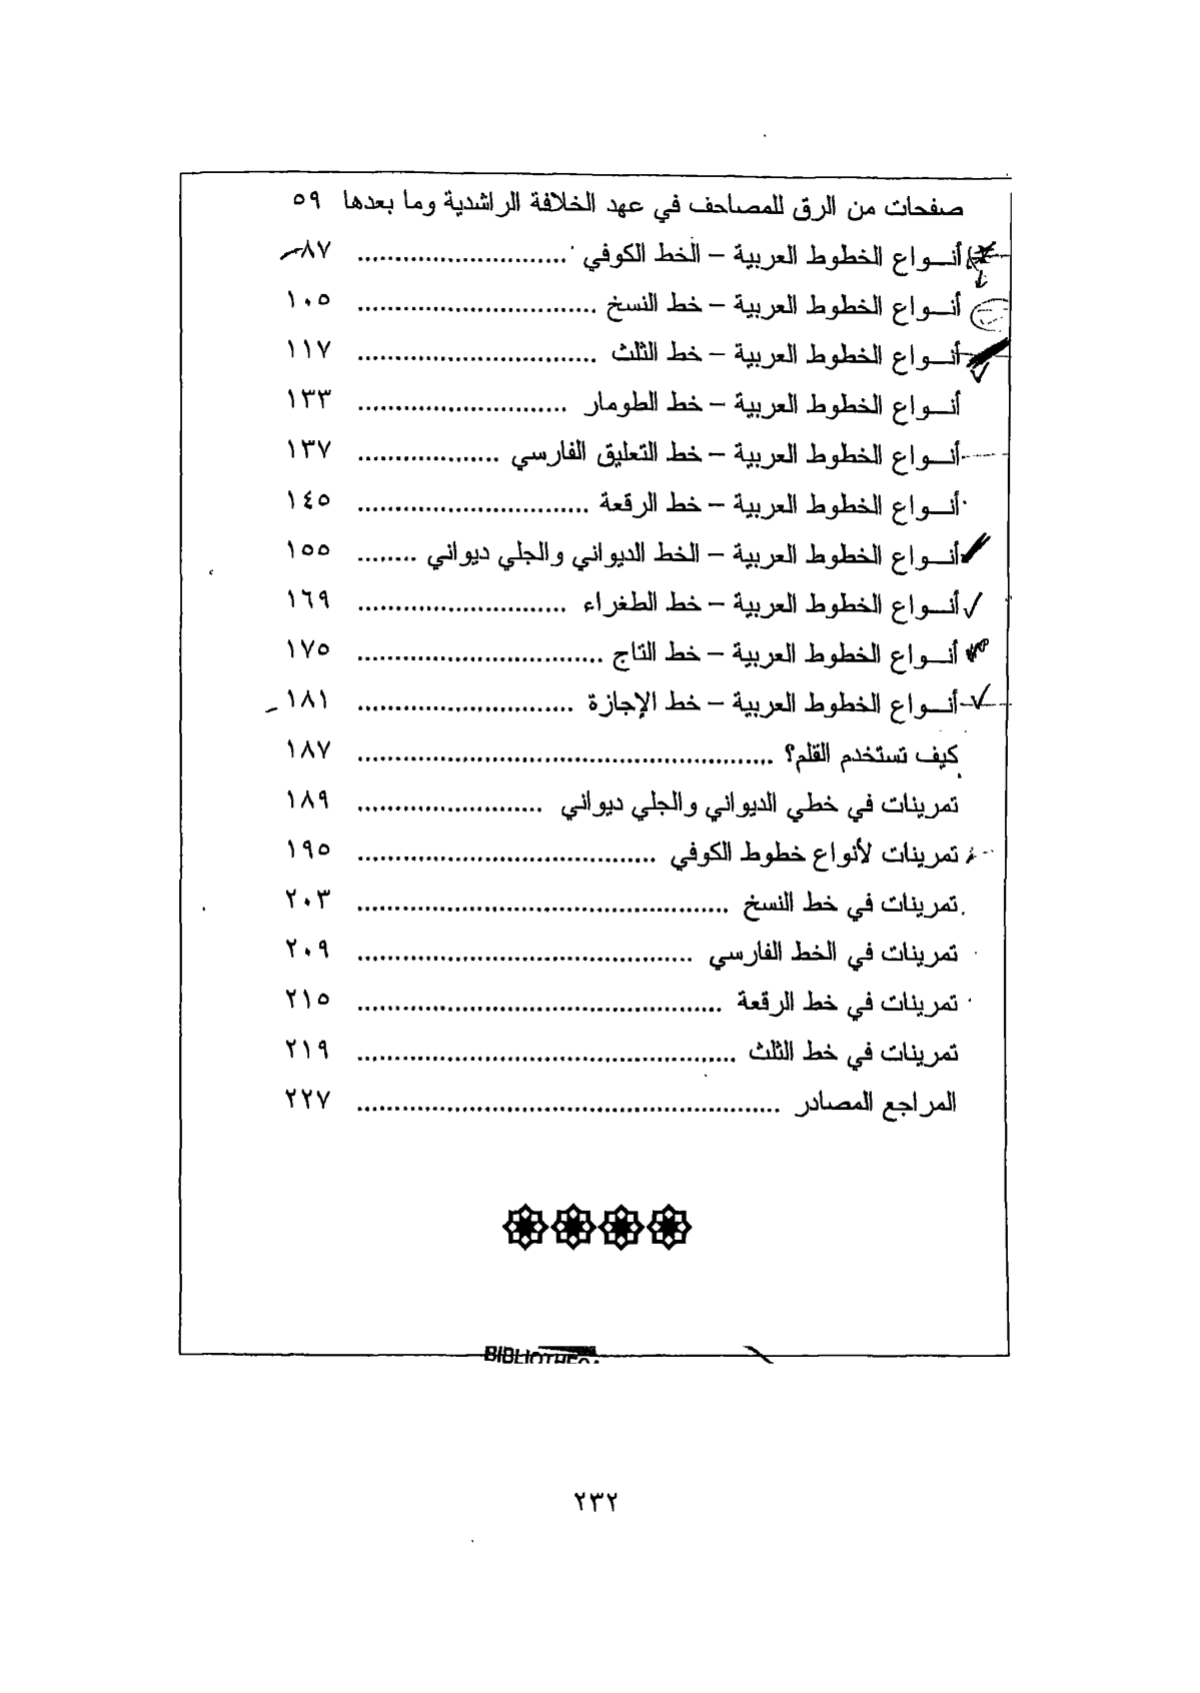 صفحات من الرق للمصاحف في عهد الخلافة الراشدية وما بعدها ٥٩
أنـواع الخطوط العربية – الخط الكوفي ............................ ٨٧
أنـواع الخطوط العربية – خط النسخ ................................ ١٠٥
أنـواع الخطوط العربية – خط الثلث ................................ ١١٧
أنـواع الخطوط العربية – خط الطومار ............................ ١٣٣
أنـواع الخطوط العربية – خط التعليق الفارسي ................... ١٣٧
أنـواع الخطوط العربية – خط الرقعة ............................... ١٤٥
أنـواع الخطوط العربية – الخط الديواني والجلي ديواني ........ ١٥٥
أنـواع الخطوط العربية – خط الطغراء ............................ ١٦٩
أنـواع الخطوط العربية – خط التاج ................................. ١٧٥
أنـواع الخطوط العربية – خط الإجازة ............................. ١٨١
كيف تستخدم القلم؟ ........................................................ ١٨٧
تمرينات في خطي الديواني والجلي ديواني ......................... ١٨٩
تمرينات لأنواع خطوط الكوفي ........................................ ١٩٥
تمرينات في خط النسخ .................................................. ٢٠٣
تمرينات في الخط الفارسي ............................................. ٢٠٩
تمرينات في خط الرقعة ................................................. ٢١٥
تمرينات في خط الثلث ................................................... ٢١٩
المراجع المصادر ......................................................... ٢٢٧
٢٣٢